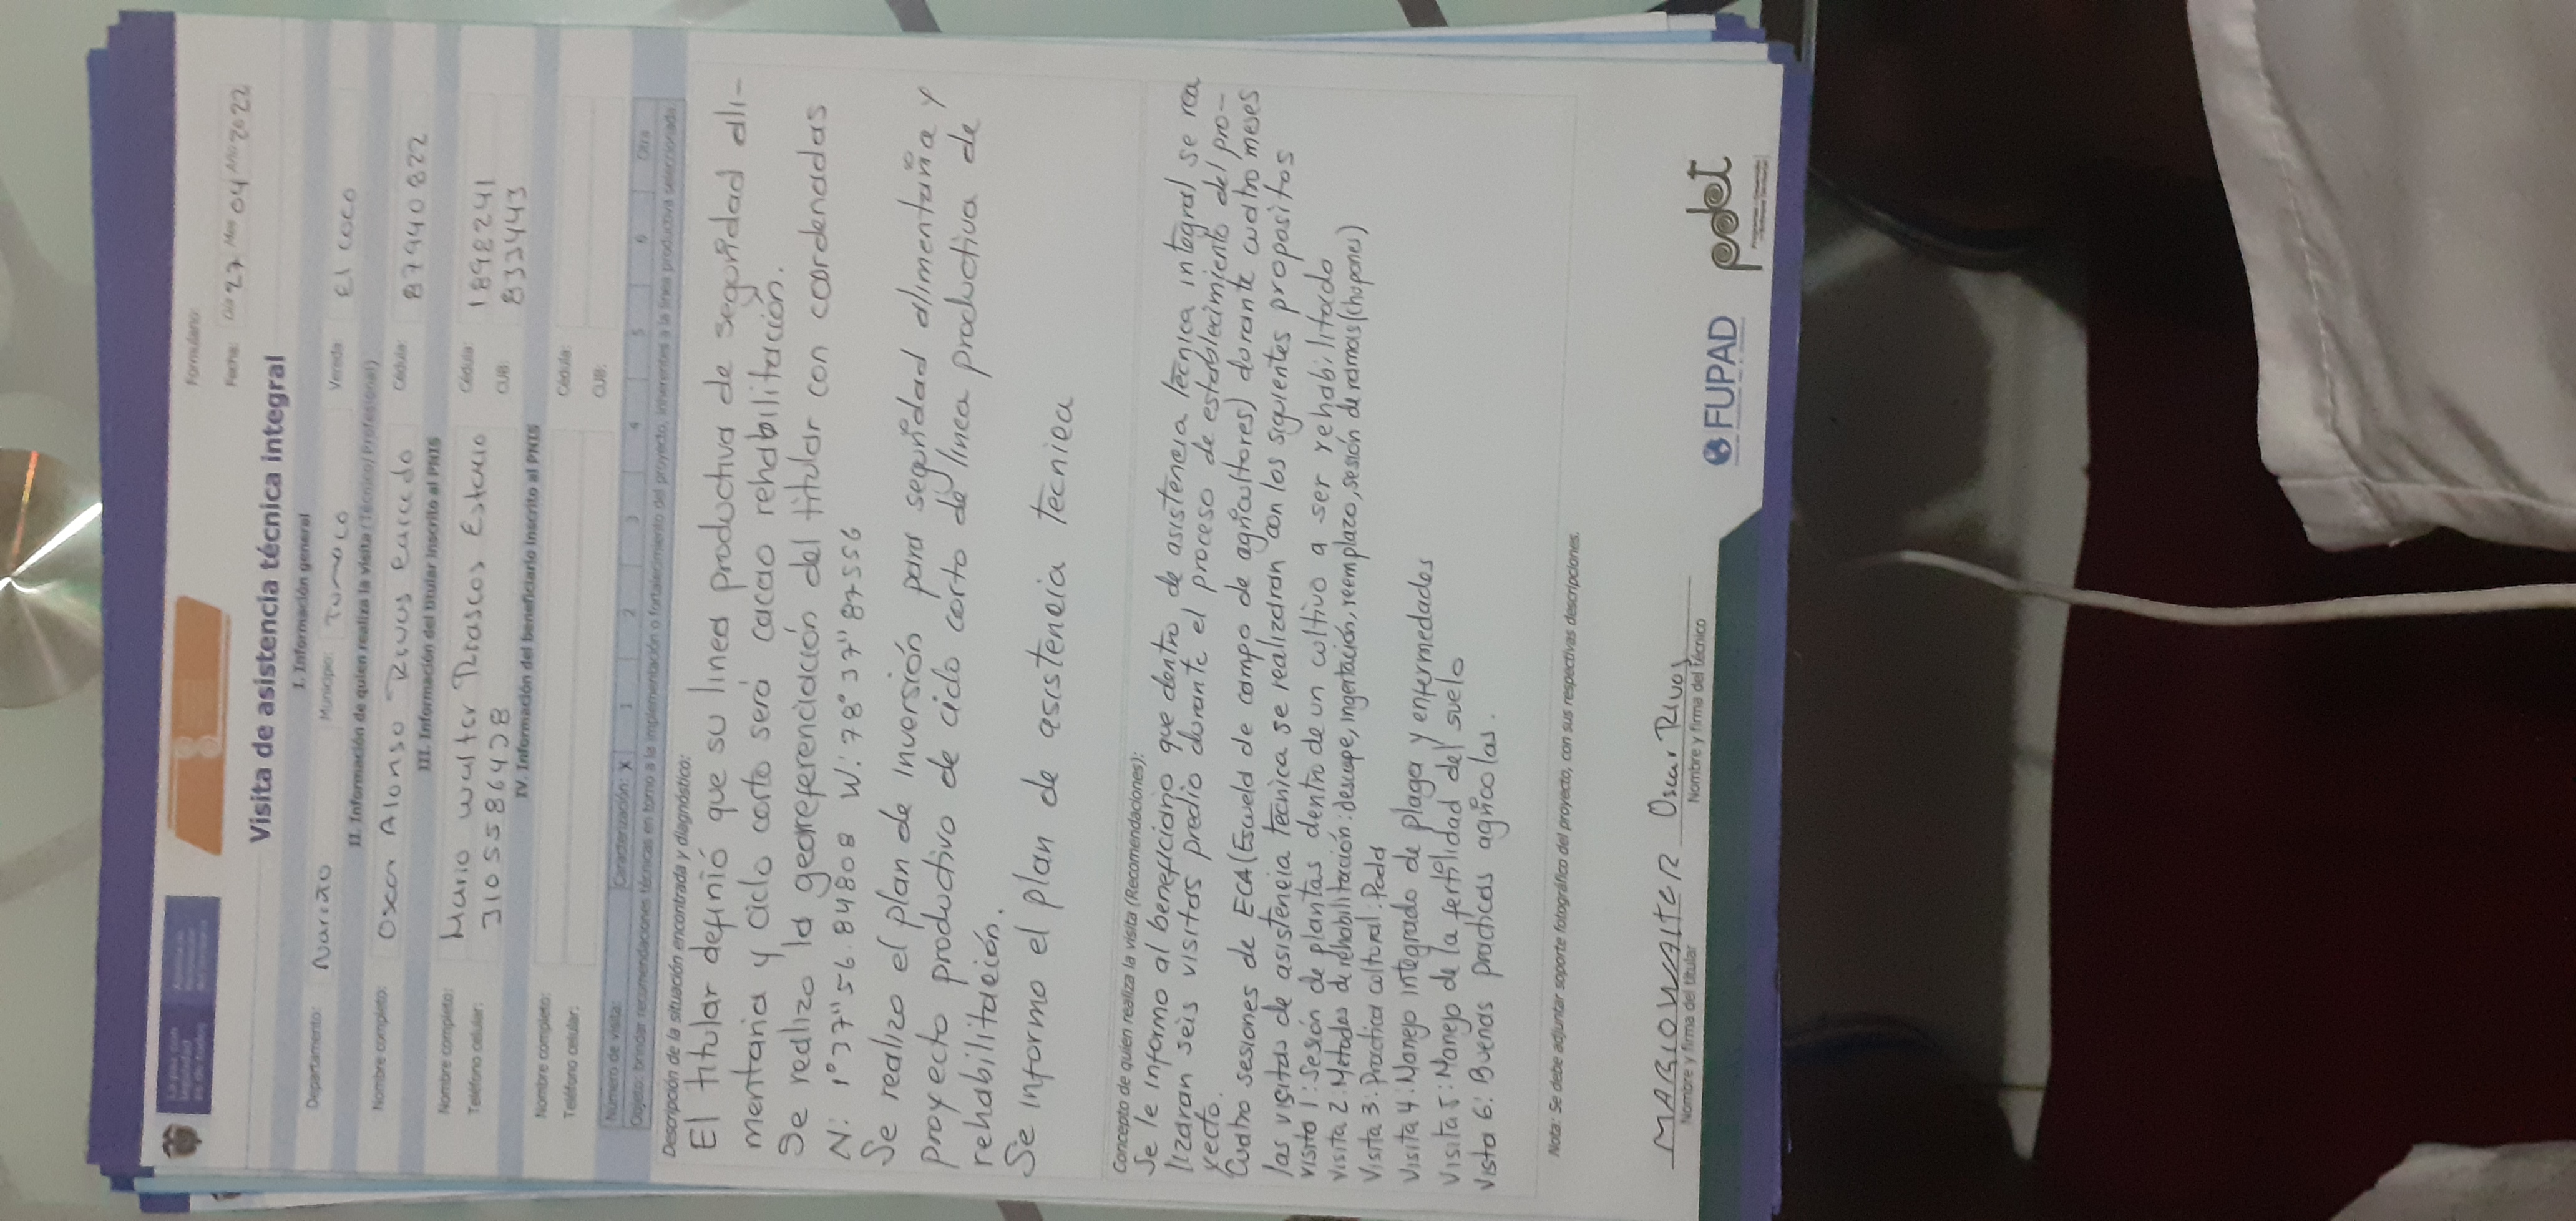 La paz con
legalidad
es de todos
Formulario:
Fecha: Día 27 Mes 04 Año 2022
Visita de asistencia técnica integral
I. Información general
Departamento: Nariño Municipio: Tumaco Vereda: El coco
II. Información de quien realiza la visita (Técnico/Profesional)
Nombre completo: Oscar Alonso Rivas Caicedo Cédula: 87940822
III. Información del titular inscrito al PNIS
Nombre completo: Mario Walter Rosales Estacio Cédula: 1898241
Teléfono celular: 3105586428 CUB: 8333443
IV. Información del beneficiario inscrito al PNIS
Nombre completo: Cédula:
Teléfono celular: CUB:
Número de visita: Caracterización: X 1 2 3 4 5 6 Otra
Objeto: brindar recomendaciones técnicas en torno a la implementación o fortalecimiento del proyecto, inherentes a la línea productiva seleccionada
Descripción de la situación encontrada y diagnóstico:
El titular definió que su linea productiva de seguridad ali-
mentaria y ciclo corto será cacao rehabilitación.
Se realizo la georeferenciación del titular con cordenadas
N: 1°37"56.84808 W: 78°37"87556
Se realizo el plan de inversión para seguridad alimentaria y
proyecto productivo de ciclo corto de linea productiva de
rehabilitación.
Se informo el plan de asistencia técnica
Concepto de quien realiza la visita (Recomendaciones):
Se le informo al beneficiario que dentro de asistencia técnica integral se rea
lizaran seis visitas predio durante el proceso de establecimiento del pro-
yecto.
Cuatro sesiones de ECA (Escuela de campo de agricultores) durante cuatro meses
las visitas de asistencia técnica se realizaran con los siguientes propositos
visita 1: Sesión de plantas dentro de un cultivo a ser rehabilitado
visita 2: Métodos de rehabilitación: descope, ingertación, reemplazo, sesión de ramas (chupones)
Visita 3: Practica cultural: Poda
Visita 4: Manejo integrado de plagas y enfermedades
Visita 5: Manejo de la fertilidad del suelo
Vista 6: Buenas practicas agricolas.
Nota: Se debe adjuntar soporte fotográfico del proyecto, con sus respectivas descripciones.
MARIO WALTER Oscar Rivas
Nombre y firma del titular Nombre y firma del técnico
FUPAD pdet